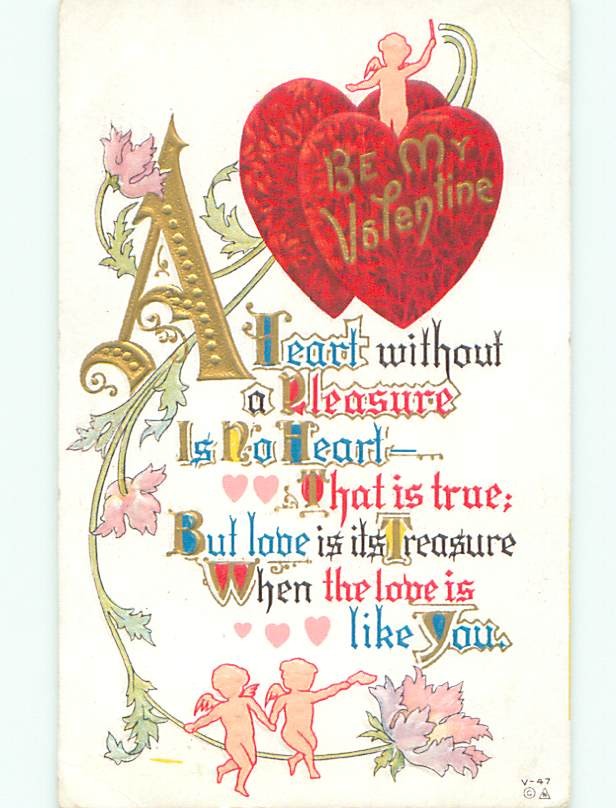 Be My
Valentine
A Heart without
a Pleasure
Is No Heart—
That is true;
But love is its Treasure
When the love is
like You.
V-47
©